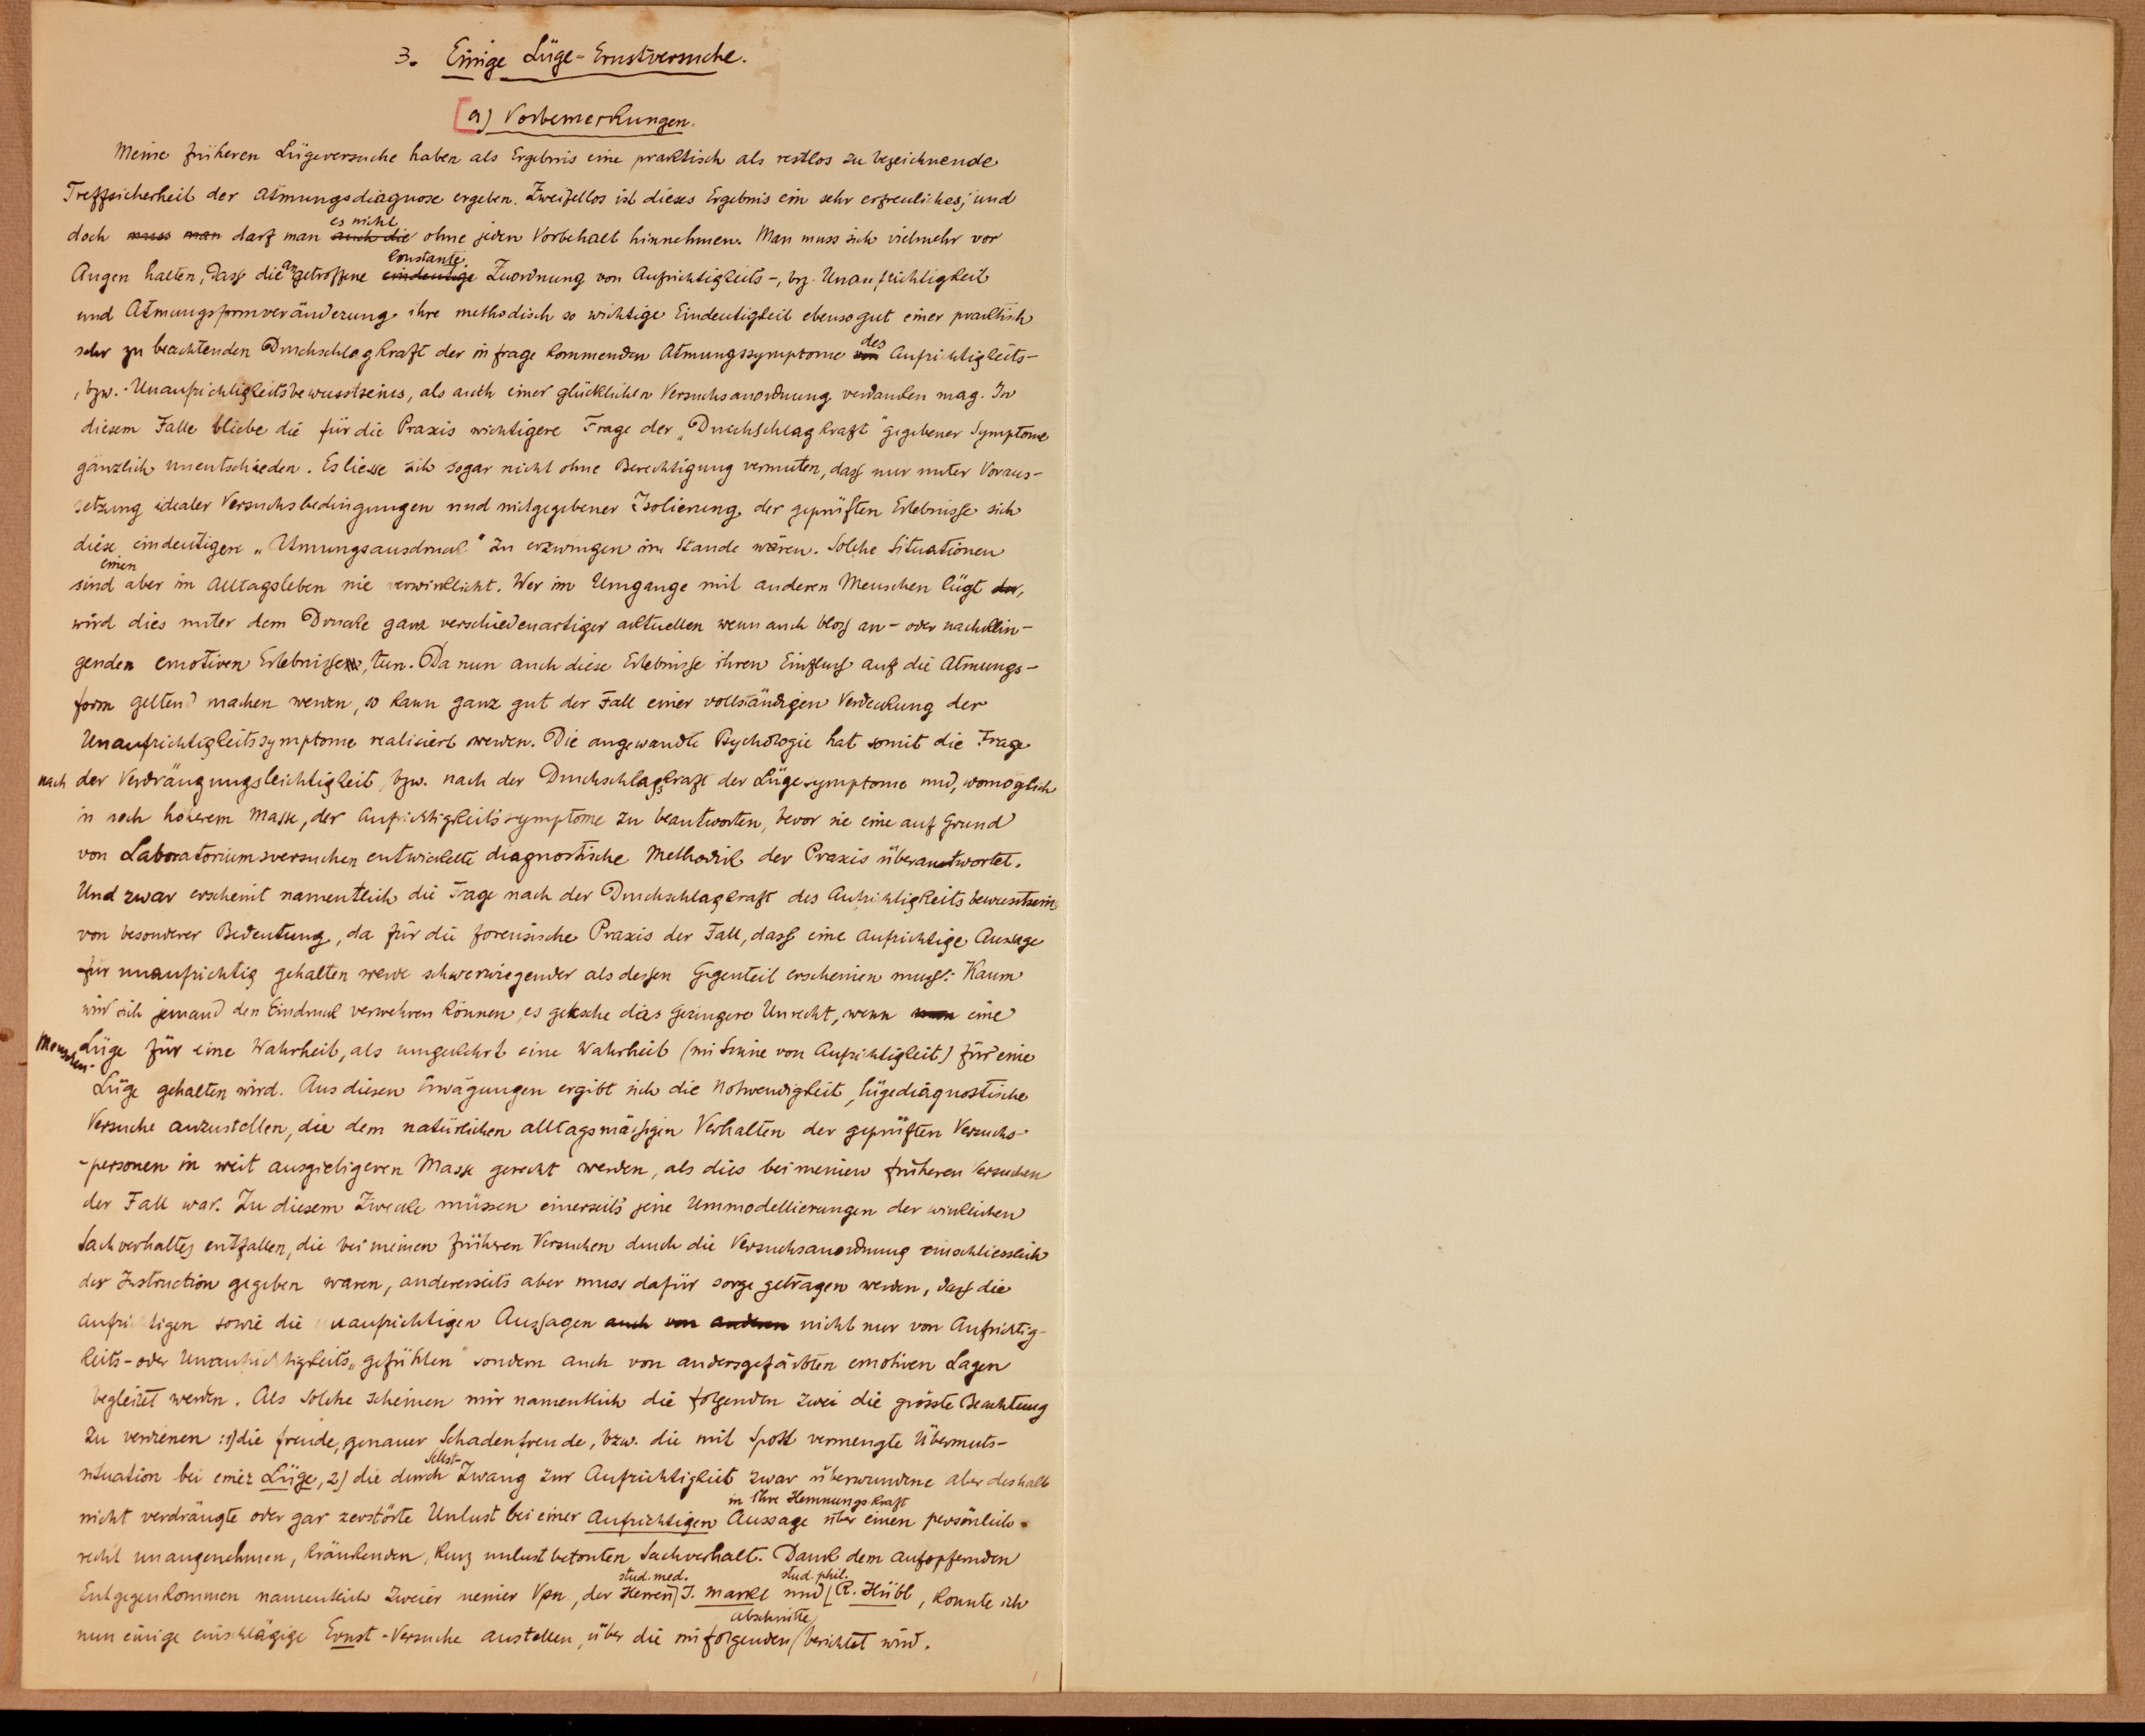 3. Einige Lüge-Ernstversuche.
a) Vorbemerkungen.
Meine früheren Lügeversuche haben als Ergebnis eine praktisch als restlos zu bezeichnende
Treffsicherheit der Atmungsdiagnose ergeben. Zweifellos ist dieses Ergebnis ein sehr erfreuliches; und
es nicht
doch muss man darf man auch die ohne jeden Vorbehalt hinnehmen. Man muss sich vielmehr vor
constante
Augen halten, dass die angetroffene eindeutige Zuordnung von Aufrichtigkeits-, bz. Unaufrichtigkeit
und Atmungsformveränderung ihre methodisch so wichtige Eindeutigkeit ebensogut einer practisch
des
sehr zu beachtenden Durchschlagkraft der in frage kommenden Atmungssymptome von Aufrichtigkeits-
, bzw. Unaufrichtigkeitsbewusstseins, als auch einer glücklichen Versuchsanordnung verdanken mag. In
diesem Falle bliebe die für die Praxis wichtigere Frage der „Durchschlagkraft" gegebener Symptome
gänzlich unentschieden. Es liesse sich sogar nicht ohne Berechtigung vermuten, dass nur unter Voraus-
setzung idealer Versuchsbedingungen und mitgegebener Isolierung der geprüften Erlebnisse sich
diese eindeutigen „Atmungsausdruck" zu erzwingen im Stande wären. Solche Situationen
einen
sind aber im Alltagsleben nie verwirklicht. Wer im Umgange mit anderen Menschen lügt der,
wird dies unter dem Drucke ganz verschiedenartiger aktuellen wenn auch bloss an- oder nachklin-
genden emotiven Erlebnisse, tun. Da nun auch diese Erlebnisse ihren Einfluss auf die Atmungs-
form geltend machen werden, so kann ganz gut der Fall einer vollständigen Verdeckung der
Unaufrichtigkeitssymptome realisiert werden. Die angewandte Psychologie hat somit die Frage
nach der Verdrängungsleichtigkeit, bzw. nach der Durchschlagskraft der Lügesymptome und, womöglich
in noch höherem Masse, der Aufrichtigkeitssymptome zu beantworten, bevor sie eine auf Grund
von Laboratoriumsversuchen entwickelte diagnostische Methodik der Praxis überantwortet.
Und zwar erscheint namentlich die Frage nach der Durchschlagkraft des Aufrichtigkeitsbewusstseins
von besonderer Bedeutung, da für die forensische Praxis der Fall, dass eine aufrichtige Aussage
für unaufrichtig gehalten werde schwerwiegender als dessen Gegenteil erscheinen muss: Kaum
wird sich jemand den Eindruck verwehren können, es gesche das geringere Unrecht, wenn man eine
Menschen-
Lüge für eine Wahrheit, als umgekehrt eine Wahrheit (im Sinne von Aufrichtigkeit) für eine
Lüge gehalten wird. Aus diesen Erwägungen ergibt sich die Notwendigkeit, lügediagnostische
Versuche anzustellen, die dem natürlichen alltagsmässigen Verhalten der geprüften Versuchs-
-personen in weit ausgiebigeren Masse gerecht werden, als dies bei meinen früheren Versuchen
der Fall war. Zu diesem Zwecke müssen einerseits jene Ummodellierungen der wirklichen
Sachverhaltes entfallen, die bei meinen früheren Versuchen durch die Versuchsanordnung einschliesslich
der Instruction gegeben waren, andererseits aber muss dafür sorge getragen werden, dass die
aufrichtigen sowie die unaufrichtigen Aussagen auch von anderen nicht nur von Aufrichtig-
keits- oder Unaufrichtigkeits„gefühlen" sondern auch von andersgefärbten emotiven Lagen
begleitet werden. Als solche scheinen mir namentlich die folgenden zwei die grösste Beachtung
zu verdienen: 1) die freude, genauer Schadenfreude, bzw. die mit Spott vermengte Übermuts-
Selbst-
situation bei einer Lüge, 2) die durch Zwang zur Aufrichtigkeit zwar überwundene aber deshalb
in ihre Hemmungskraft
nicht verdrängte oder gar zerstörte Unlust bei einer Aufrichtigen Aussage über einen persönlich
recht unangenehmen, kränkenden, kurz unlustbetonten Sachverhalt. Dank dem aufopfernden
stud. med. stud. phil.
Entgegenkommen namentlich zweier meiner Vpn., der Herren J. Markl und R. Hübl, konnte ich
Abschnitte
nun einige einschlägige Ernst-Versuche anstellen, über die im folgenden berichtet wird.